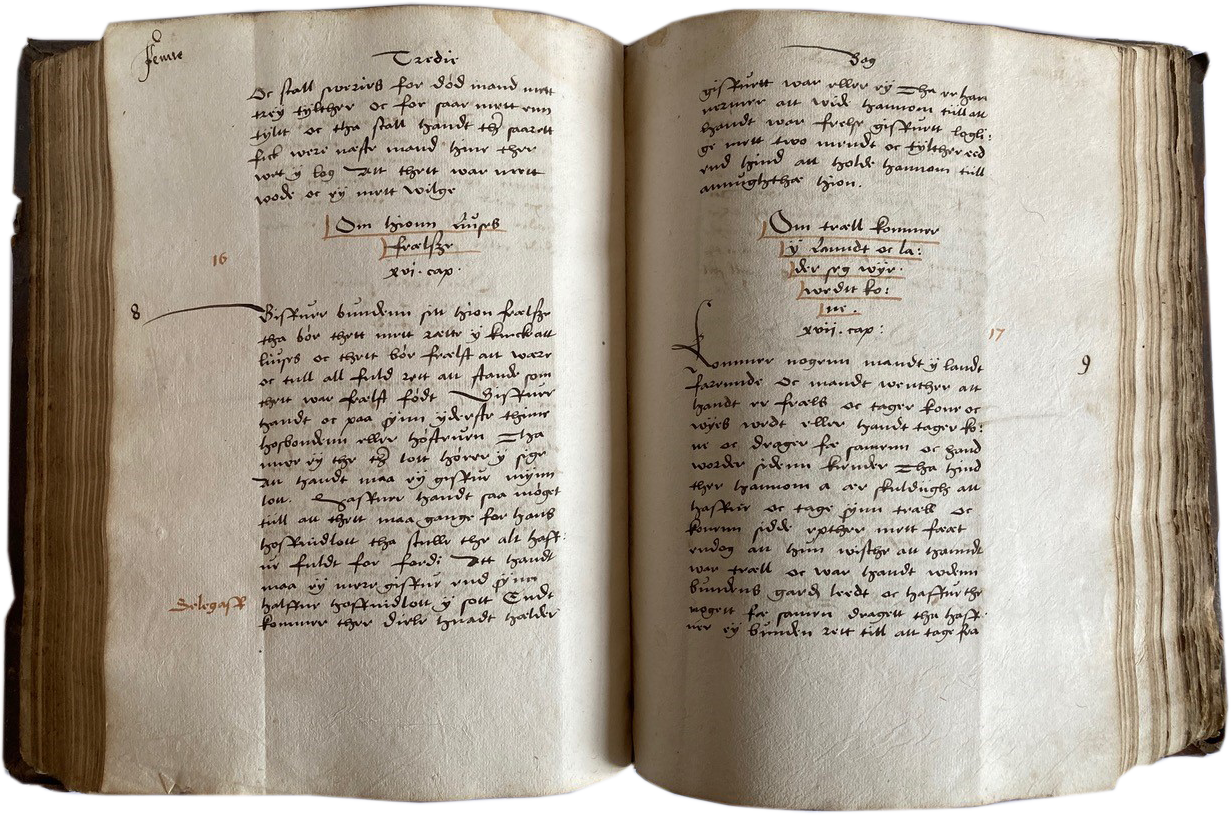 Tredie
Oc skall sweries for død mand mett
trey tylther oc for saar mett enn
tyltt oc tha skall handt ther saarett
fick were næste mand hine ther
wet y log Att thett war mett
wode oc ey mett wilge
Om hionn liuses
frælsze
xvi. cap.
16
8
Gifuer bundenn sitt hion frælsze
tha bør thett mett rætte y kirck att
liuses oc thett bør frælst att were
oc till all fuld rett att stande som
thett war fælst født Gifuer
handt oc paa synn yderste thime
hosbondenn eller høstruen Tha
mer ey the lott hører y sige
Att handt maa ey gifue mynn
lott. Hafuer handt saa møget
till att thett maa gange for hans
hofuidlott tha skulle the alt haf=
ue fuldt for fordi Att handt
maa ey mere gifue end synn
halffue hoffuidlott y sott Endt
kommer ther diele huadt heller
Delegaff
Bog
gifuett war eller ey Tha er han
nermer att wide hannom till att
handt war frelse gifuett logli=
ge mett two mendt oc tylther eed
end hind att holde hannom till
annughthz hion.
Om træll kommer
y lanndt oc la:
der seg wyr
wedtt ko:
ne.
xvii. cap:
17
9
Kommer nogenn mandt y landt
farennde oc mandt wenther att
handt er fræls oc tager kone oc
wyes wedt eller handt tager ko:
ne oc drager fæ samenn oc hand
worder sidenn kiender Tha hind
ther hannom a ær skuldugh att
haffue oc tage synn træll oc
konenn sidde epther mett fæet
endog att hun wisthe att hanndt
war træll oc war handt udenn
bundens gardz leedt oc haffue the
nogett fæ samen dragett tha haff=
uer ey bunden rett till att tage fra